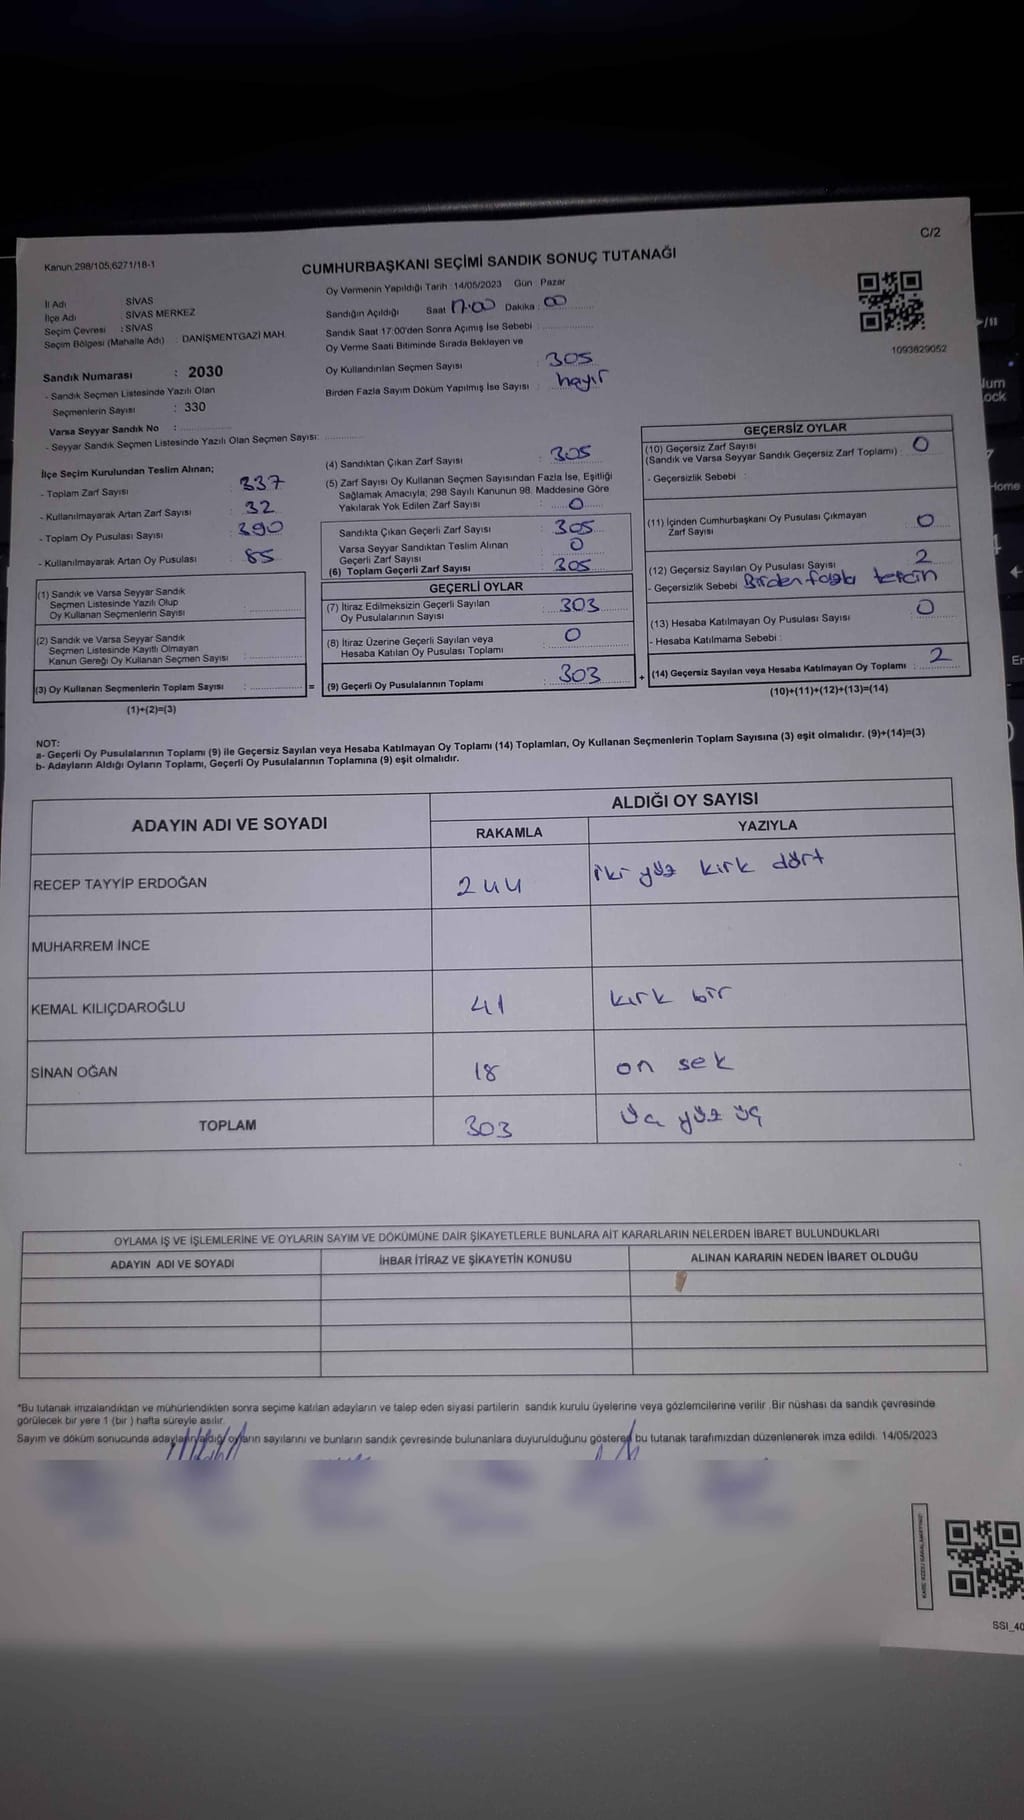 C/2
Kanun 298/105,6271/18-1
CUMHURBAŞKANI SEÇİMİ SANDIK SONUÇ TUTANAĞI
İl Adı SİVAS
İlçe Adı : SİVAS MERKEZ
Seçim Çevresi : SİVAS
Seçim Bölgesi (Mahalle Adı) : DANİŞMENTGAZİ MAH.
Sandık Numarası : 2030
- Sandık Seçmen Listesinde Yazılı Olan
Seçmenlerin Sayısı : 330
Varsa Seyyar Sandık No :
- Seyyar Sandık Seçmen Listesinde Yazılı Olan Seçmen Sayısı:
Oy Vermenin Yapıldığı Tarih : 14/05/2023 Gün : Pazar
Sandığın Açıldığı Saat 17:00 Dakika : 00
Sandık Saat 17:00'den Sonra Açımış İse Sebebi :
Oy Verme Saati Bitiminde Sırada Bekleyen ve
Oy Kullandırılan Seçmen Sayısı : 305
Birden Fazla Sayım Döküm Yapılmış İse Sayısı : hayır
1093629052
İlçe Seçim Kurulundan Teslim Alınan;
- Toplam Zarf Sayısı : 337
- Kullanılmayarak Artan Zarf Sayısı : 32
- Toplam Oy Pusulası Sayısı : 390
- Kullanılmayarak Artan Oy Pusulası : 85
(1) Sandık ve Varsa Seyyar Sandık
Seçmen Listesinde Yazılı Olup
Oy Kullanan Seçmenlerin Sayısı :
(2) Sandık ve Varsa Seyyar Sandık
Seçmen Listesinde Kayıtlı Olmayan
Kanun Gereği Oy Kullanan Seçmen Sayısı :
(3) Oy Kullanan Seçmenlerin Toplam Sayısı : =
(1)+(2)=(3)
(4) Sandıktan Çıkan Zarf Sayısı : 305
(5) Zarf Sayısı Oy Kullanan Seçmen Sayısından Fazla İse, Eşitliği
Sağlamak Amacıyla, 298 Sayılı Kanunun 98. Maddesine Göre
Yakılarak Yok Edilen Zarf Sayısı : 0
Sandıkta Çıkan Geçerli Zarf Sayısı : 305
Varsa Seyyar Sandıktan Teslim Alınan
Geçerli Zarf Sayısı : 0
(6) Toplam Geçerli Zarf Sayısı : 305
GEÇERLİ OYLAR
(7) İtiraz Edilmeksizin Geçerli Sayılan
Oy Pusulalarının Sayısı : 303
(8) İtiraz Üzerine Geçerli Sayılan veya
Hesaba Katılan Oy Pusulası Toplamı : 0
(9) Geçerli Oy Pusulalarının Toplamı : 303 +
GEÇERSİZ OYLAR
(10) Geçersiz Zarf Sayısı
(Sandık ve Varsa Seyyar Sandık Geçersiz Zarf Toplamı) : 0
- Geçersizlik Sebebi :
(11) İçinden Cumhurbaşkanı Oy Pusulası Çıkmayan
Zarf Sayısı : 0
(12) Geçersiz Sayılan Oy Pusulası Sayısı : 2
- Geçersizlik Sebebi Birden fazla tercih
(13) Hesaba Katılmayan Oy Pusulası Sayısı : 0
- Hesaba Katılmama Sebebi :
(14) Geçersiz Sayılan veya Hesaba Katılmayan Oy Toplamı : 2
(10)+(11)+(12)+(13)=(14)
NOT:
a- Geçerli Oy Pusulalarının Toplamı (9) ile Geçersiz Sayılan veya Hesaba Katılmayan Oy Toplamı (14) Toplamları, Oy Kullanan Seçmenlerin Toplam Sayısına (3) eşit olmalıdır. (9)+(14)=(3)
b- Adayların Aldığı Oyların Toplamı, Geçerli Oy Pusulalarının Toplamına (9) eşit olmalıdır.
ADAYIN ADI VE SOYADI
ALDIĞI OY SAYISI
RAKAMLA YAZIYLA
RECEP TAYYİP ERDOĞAN 244 iki yüz kırk dört
MUHARREM İNCE
KEMAL KILIÇDAROĞLU 41 kırk bir
SİNAN OĞAN 18 on sek
TOPLAM 303 üç yüz üç
OYLAMA İŞ VE İŞLEMLERİNE VE OYLARIN SAYIM VE DÖKÜMÜNE DAİR ŞİKAYETLERLE BUNLARA AİT KARARLARIN NELERDEN İBARET BULUNDUKLARI
ADAYIN ADI VE SOYADI İHBAR İTİRAZ VE ŞİKAYETİN KONUSU ALINAN KARARIN NEDEN İBARET OLDUĞU
*Bu tutanak imzalandıktan ve mühürlendikten sonra seçime katılan adayların ve talep eden siyasi partilerin sandık kurulu üyelerine veya gözlemcilerine verilir. Bir nüshası da sandık çevresinde
görülecek bir yere 1 (bir ) hafta süreyle asılır.
Sayım ve döküm sonucunda adayların aldığı oyların sayılarını ve bunların sandık çevresinde bulunanlara duyurulduğunu gösteren bu tutanak tarafımızdan düzenlenerek imza edildi. 14/05/2023
SSI_40
Num
Lock
Home